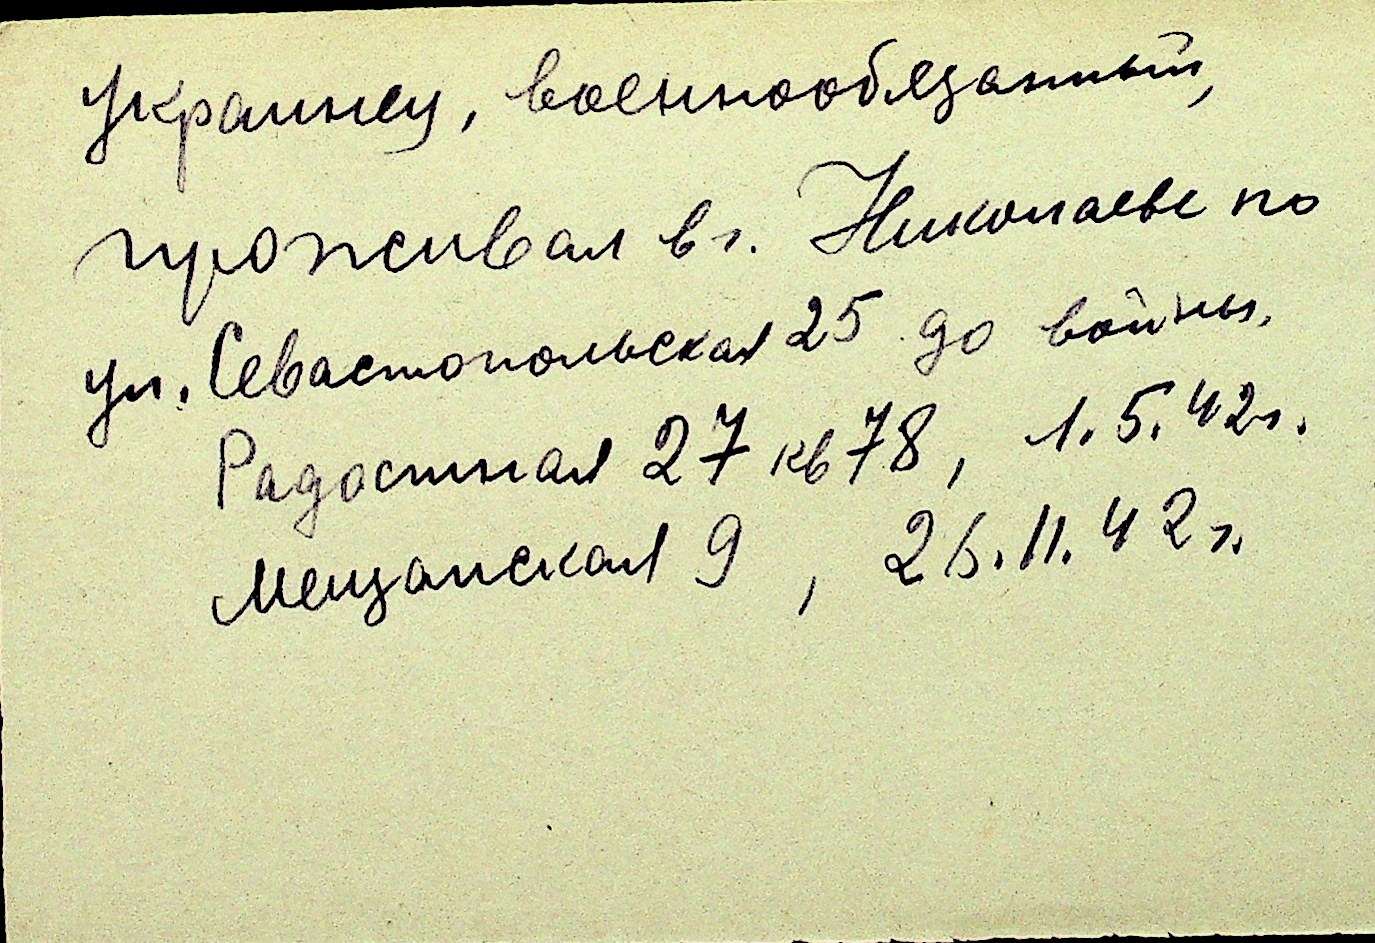 украинец, военнообязанный,
проживал в г. Николаеве по
ул. Севастопольская 25 до войны,
Радостная 27 кв 78, 1.5.42г.
Мещанская 9, 26.11.42г.